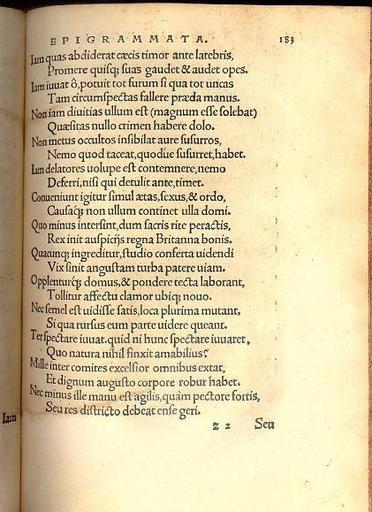 EPIGRAMMATA. 183
Iam quas abdiderat cæcis timor ante latebris,
Promere quisq; suas gaudet & audet opes.
Iam iuuat ô, potuit tot furum si qua tot uncas
Tam circumspectas fallere præda manus.
Non iam diuitias ullum est (magnum esse solebat)
Quæsitas nullo crimen habere dolo.
Non metus occultos insibilat aure susurros,
Nemo quod taceat, quodúe susurret, habet.
Iam delatores uolupe est contemnere, nemo
Deferri, nisi qui detulit ante, timet.
Conueniunt igitur simul ætas, sexus, & ordo,
Causaq; non ullum continet ulla domi.
Quo minus intersint, dum sacris rite peractis,
Rex init auspicijs regna Britanna bonis.
Quacunq; ingreditur, studio conferta uidendi
Vix sinit angustam turba patere uiam.
Opplenturq; domus, & pondere tecta laborant,
Tollitur affectu clamor ubiq; nouo.
Nec semel est uidisse satis, loca plurima mutant,
Si qua rursus eum parte uidere queant.
Ter spectare iuuat. quid ni hunc spectare iuuaret,
Quo natura nihil finxit amabilius?
Mille inter comites excelsior omnibus extat,
Et dignum augusto corpore robur habet.
Nec minus ille manu est agilis, quàm pectore fortis,
Seu res districto debeat ense geri.
z 2 Seu
Iam